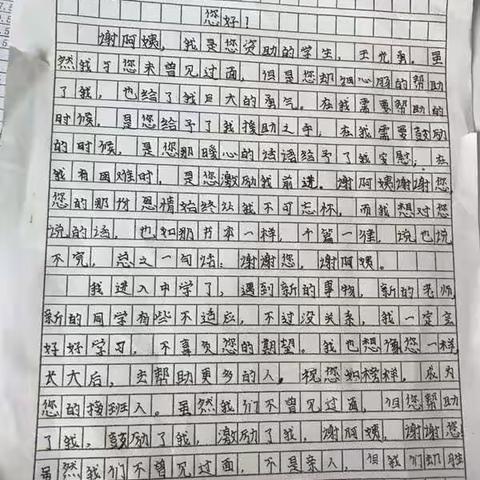 您好!
谢阿姨,我是您资助的学生,王允禹。虽
然我与您未曾见过面,但是您却细心的帮助
了我,也给了我巨大的勇气。在我需要帮助的
时候,是您给予了我援助之手,在我需要鼓励
的时候,是您那暖心的话语给予了我安慰;在
我有困难时,是您激励我前进。谢阿姨谢谢您,
您的那份恩情始终让我不可忘怀,而我想对您
说的话,也如那书本一样,千篇一,说也说
不完,总之一句话:谢谢您,谢阿姨。
我进入中学了,遇到新的事物,新的老师,
新的同学有些不适应,不过没关系,我一定会
好好学习,不辜负您的期望。我也想像您一样,
长大后,去帮助更多的人。视您如榜样,成为
您的接班人。虽然我们不曾见过面,但您帮助
了我,鼓励了我,激励了我,谢阿姨,谢谢您
虽然我们不曾见过面,不是亲人,但我们却胜